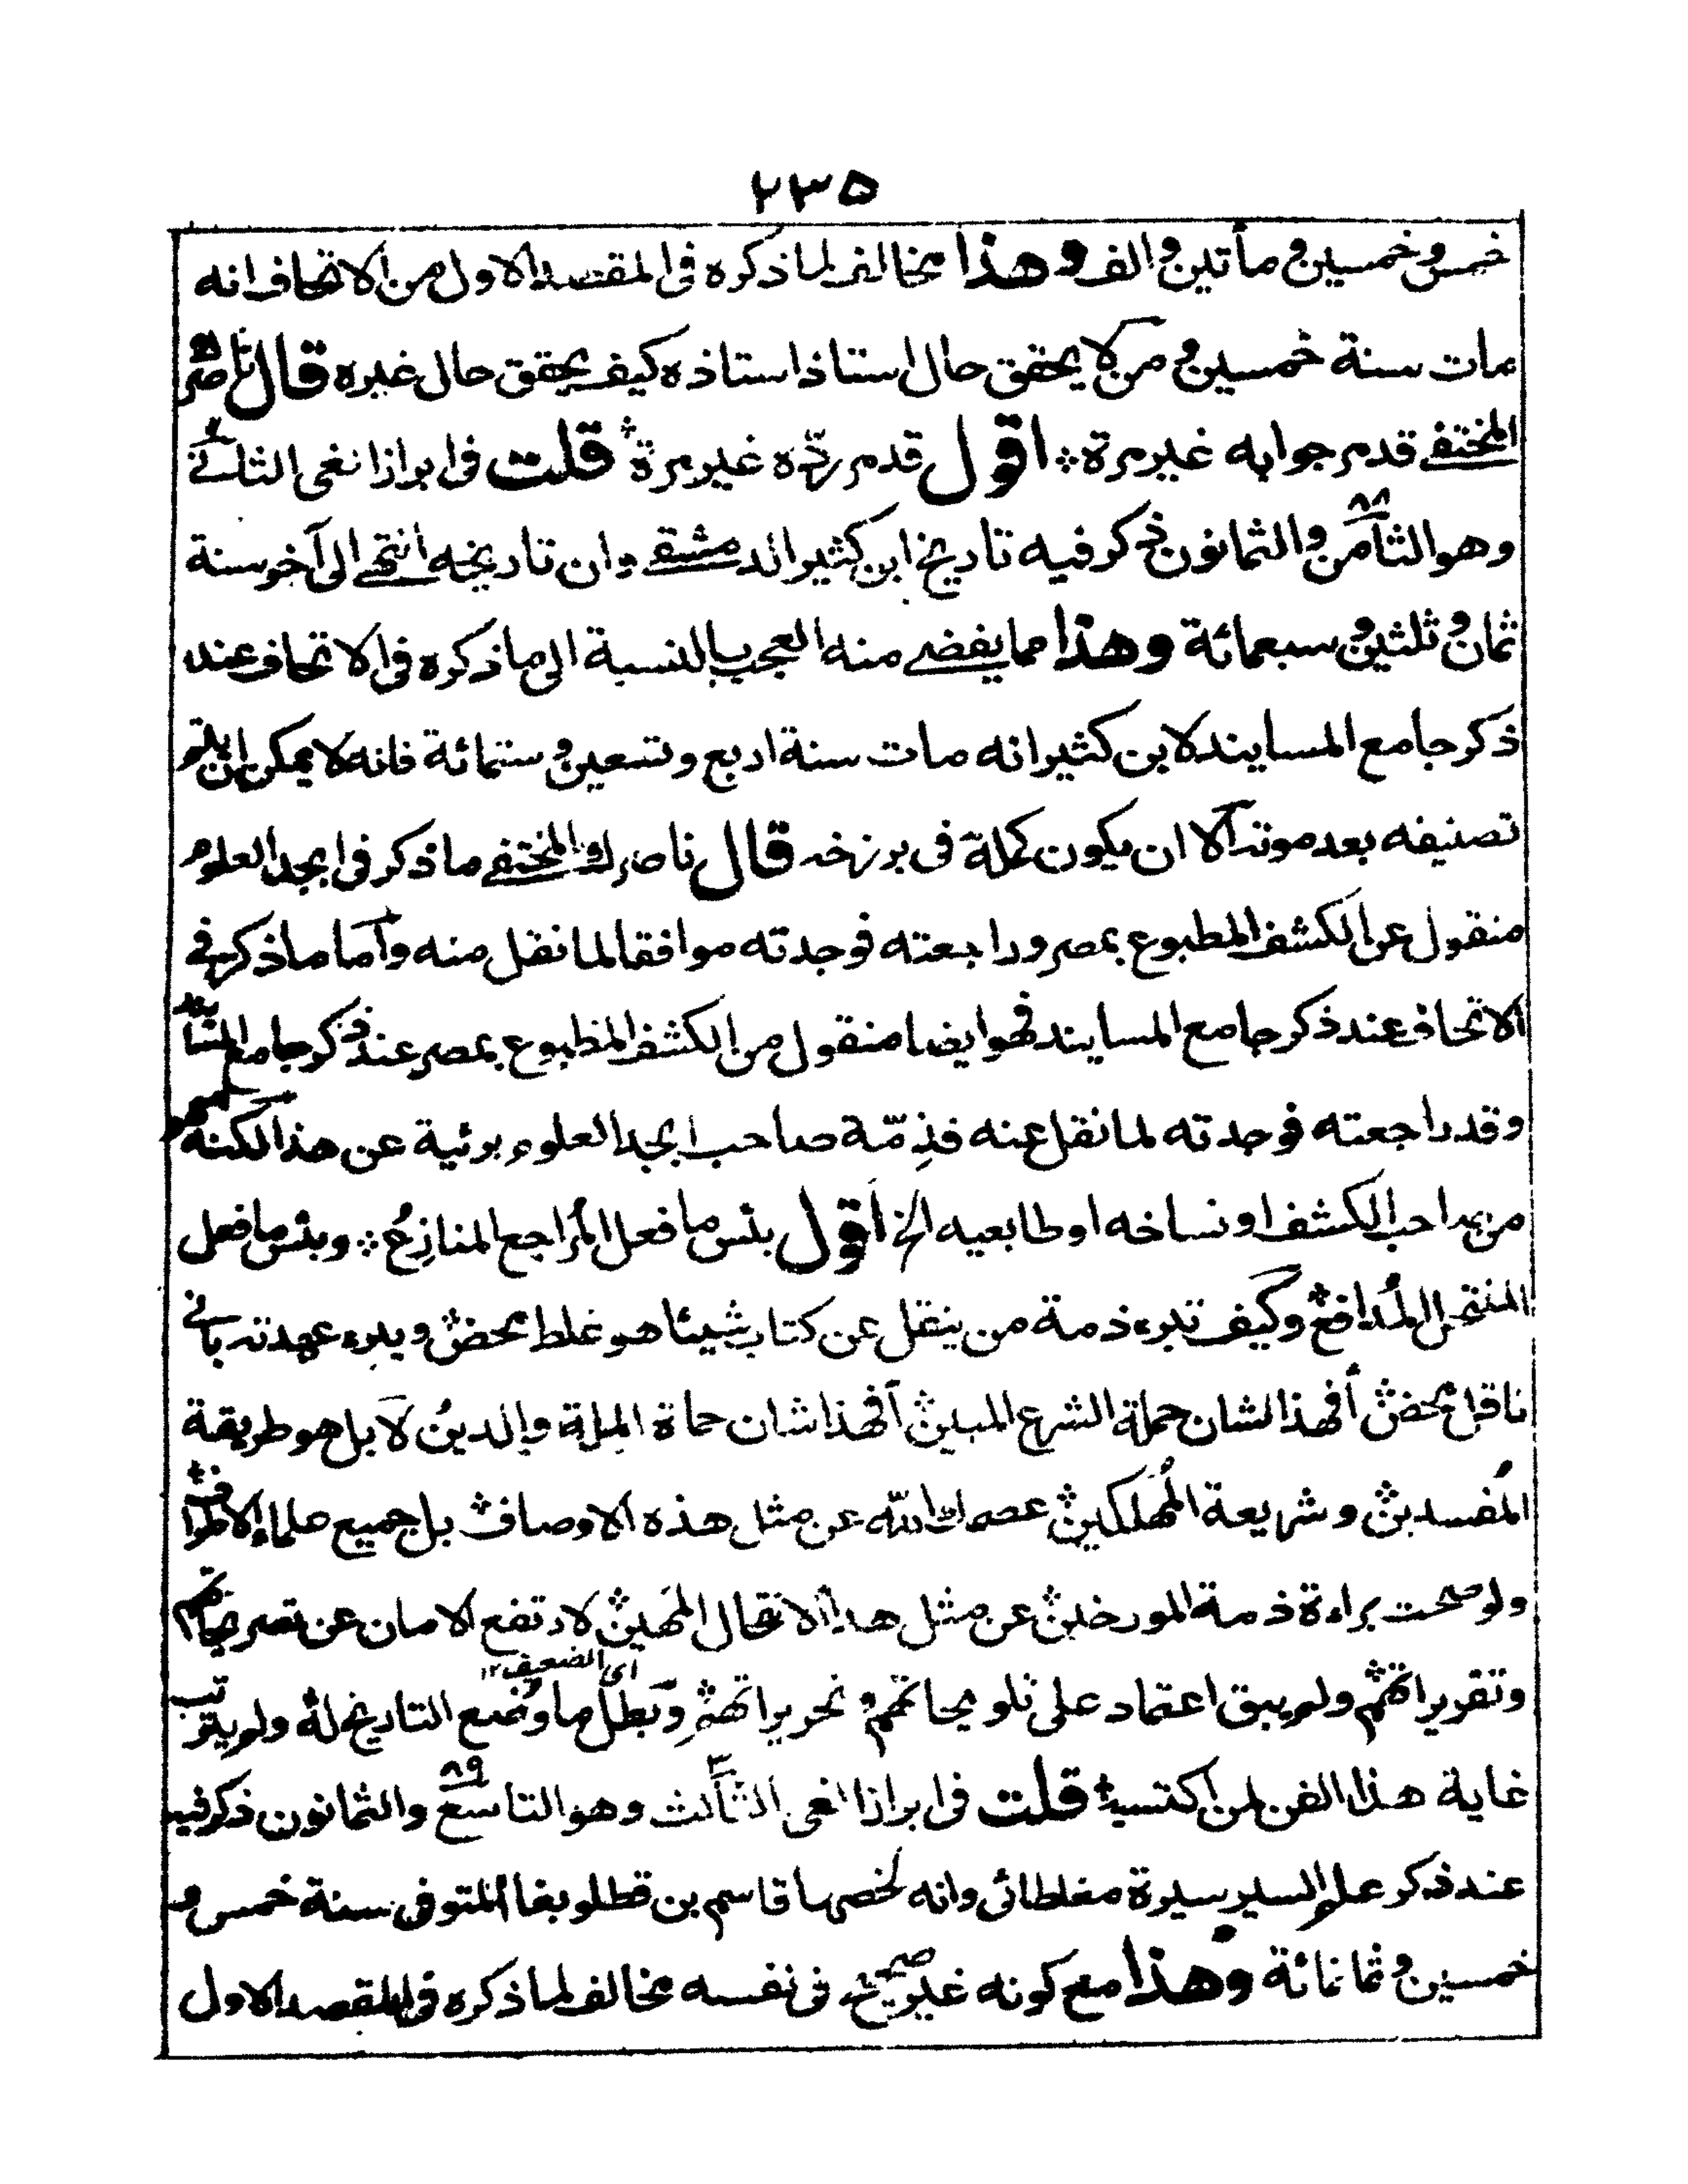 ۲۳۵
خمس وخمسين ومأتين والف وهذا مخالف لما ذكره فى المقصد الاول من الاتحاف انه
مات سنة خمسين ومن لا يحقق حال استاذ استاذه كيف يحقق حال غيره قال ناصرك
المختفے قد مر جوابه غير مرة ۞ اقول قد مر ردّه غير مرة ۞ قلت فى ابراز الغى الثانے
وهو الثامن والثمانون ذكر فيه تاريخ ابن كثير الدمشقے وان تاريخه انتهے الى آخر سنة
ثمان وثلثين وسبعمائة وهذا مما يفضے منه العجب بالنسبة الى ما ذكره فى الاتحاف عند
ذكر جامع المسايند لابن كثير انه مات سنة اربع وتسعين وستمائة فانه لا يمكن ان يتم
تصنيفه بعد موته الا ان يكون كمله فى برزخه قال ناصرك المختفے ما ذكر فى ابجد العلوم
منقول عن الكشف المطبوع بمصر وراجعته فوجدته موافقا لما نقل منه وأما ما ذكر فى
الاتحاف عند ذكر جامع المسايند فهو ايضا منقول من الكشف المطبوع بمصر عند ذكر جامع المسايند
وقد راجعته فوجدته لما نقل عنه فذِمّة صاحب ابجد العلوم برئية عن هذا لكنه سهو
من صاحب الكشف او نساخه او طابعيه الخ اقول بئس ما فعل المُراجع المنازِعُ ۞ وبئس ما فعل
المنتحل المُدافع ۞ وكيف تبرء ذمة من ينقل عن كتاب شيئا هو غلط محض ۞ ويبرء عهدته بانى
ناقل محض ۞ أفهذا لشان حملة الشرع المبين ۞ أفهذا شان حماة الملة والدين لا بل هو طريقة
المُفسدين ۞ وشريعة المُهلكين ۞ عصمك الله عن مثل هذه الاوصاف ۞ بل جميع علماء الاطراف ۞
ولو صحت براءة ذمة المورخين ۞ عن مثل هذا الانتحال المَهين ۞ لارتفع الامان عن تصريحاتهم
وتقريراتهم ۞ ولم يبق اعتماد على تلويحاتهم وتحريراتهم ۞ وبَطل ما وُضع التاريخ له ولم يترتب
اى الضعيف ۱۲
غاية هذا الفن لمن اكتسبه ۞ قلت فى ابراز الغى الثالث وهو التاسع والثمانون ذكر فيه
عند ذكر علم السير سيرة مغلطائى وانه لخصها قاسم بن قطلوبغا المتوفى سنة خمس و
خمسين وثمانمائة وهذا مع كونه غير صحيح فى نفسه مخالف لما ذكره فى المقصد الاول